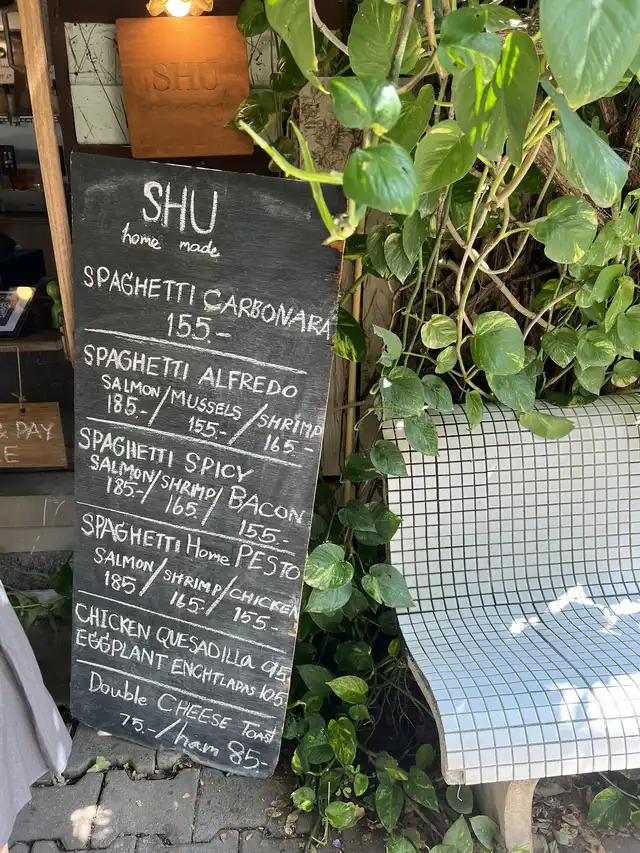 SHU
SHU
home made
SPAGHETTI CARBONARA
155.-
SPAGHETTI ALFREDO
SALMON/MUSSELS/SHRIMP
185.-/155.-/165.-
SPAGHETTI SPICY
SALMON/SHRIMP/BACON
185.-/165./155.-
SPAGHETTI Home PESTO
SALMON/SHRIMP/CHICKEN
185/165.-/155.-
CHICKEN QUESADILLA 95
EGGPLANT ENCHTLADAS 105
Double CHEESE Toast
75.-/ham 85.-
& PAY